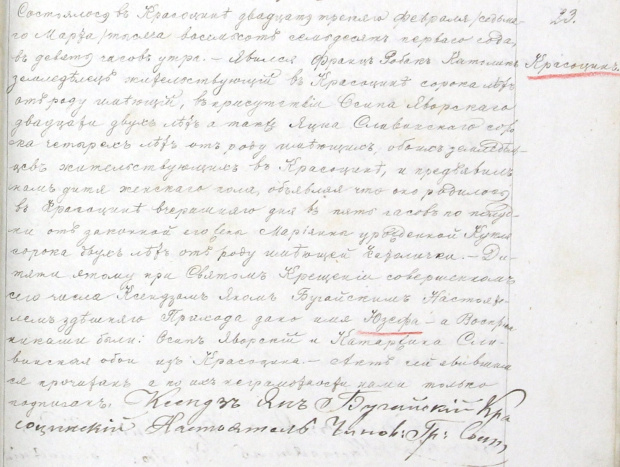 Состоялось въ Красоцинѣ двадцать третяго Февраля /седьма
го Марта/ тысяча восемьсотъ семьдесятъ перваго года,
въ девять часовъ утра. – Явился Францъ Робакъ Католикъ
земледѣлецъ жительствующій въ Красоцинѣ сорока лѣтъ
отъ роду имѣющій, въ присутствіи Осипа Яворскаго
двадцати двухъ лѣтъ а также Яцка Сливинскаго соро
ка четырехъ лѣтъ отъ роду имѣющихъ, обоихъ земледѣль
цовъ жительствующихъ въ Красоцинѣ, и предъявилъ
намъ дитя женскаго пола, объявляя что оно родилось
въ Красоцинѣ вчерашняго дня въ пять часовъ по полу
ни отъ законной его жены Маріянны урожденной
сорока двухъ лѣтъ отъ роду имѣющей – Ди
тяти этому при Святомъ Крещеніи совершенномъ
сего числа Ксендзомъ Яномъ Бугайскимъ Настояте
лемъ здѣшняго Прихода дано имя Юзефа – а Воспрі
никами были: Осипъ Яворскій и Катаржина Сли
винская обои изъ Красоцина. – Актъ сей явившим
ся прочитанъ а по ихъ неграмотности нами только
подписанъ. Ксендзъ Янъ Бугайскій Кра
социнскій Настоятель Чинов: Гр: Сост,
23.
Красоцинъ.